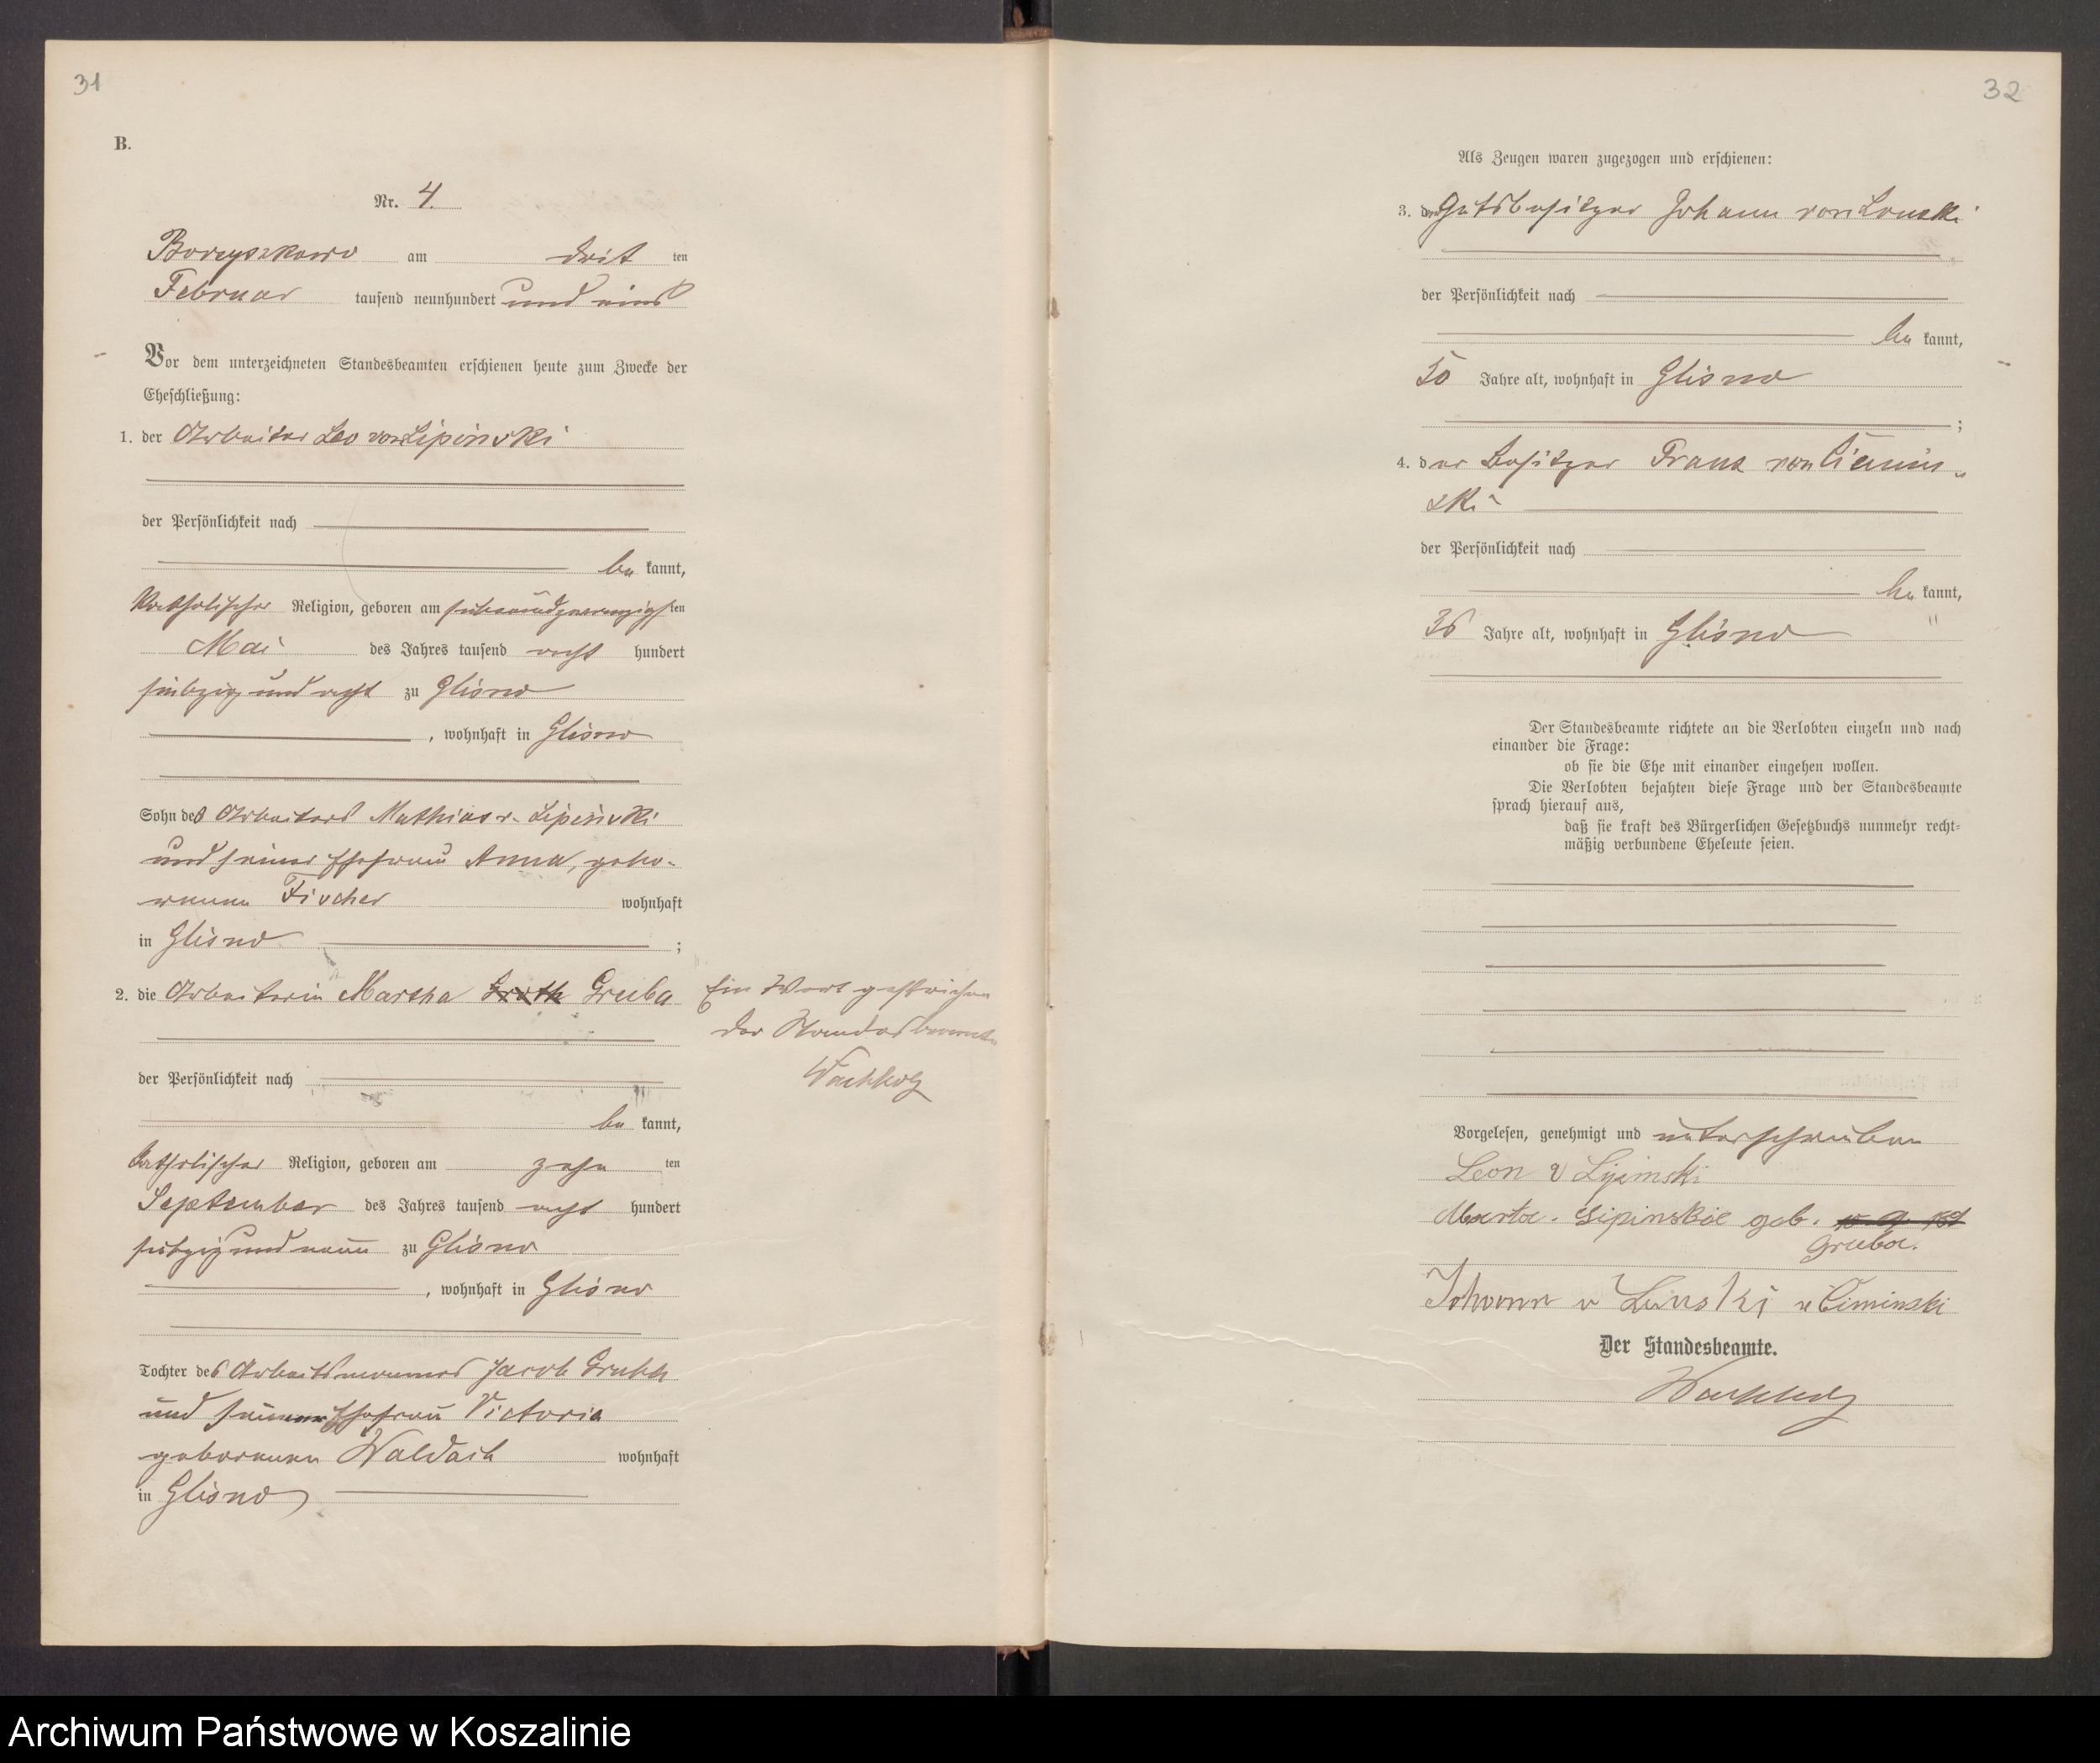 31
B.
Nr. 4.
Borzyszkowo am dritten
Februar tausend neunhundert und eins
Vor dem unterzeichneten Standesbeamten erschienen heute zum Zwecke der
Eheschließung:
1. der Arbeiter Leo von Lipinski
der Persönlichkeit nach
bekannt,
katholischer Religion, geboren am siebenundzwanzigsten
Mai des Jahres tausend acht hundert
siebzig und acht zu Glisno
, wohnhaft in Glisno
Sohn des Arbeiters Mathias v. Lipinski
und seiner Ehefrau Anna, gebo-
renen Fischer wohnhaft
in Glisno ;
2. die Arbeiterin Martha Groth Gruba
Ein Wort gestrichen
der Standesbeamte
Wachholz
der Persönlichkeit nach
bekannt,
katholischer Religion, geboren am zehnten
September des Jahres tausend acht hundert
siebzig und neun zu Glisno
, wohnhaft in Glisno
Tochter des Arbeitsmannes Jacob Grubba
und seiner Ehefrau Victoria
geborenen Waldach wohnhaft
in Glisno
32
Als Zeugen waren zugezogen und erschienen:
3. der Gutsbesitzer Johann von Lonski
der Persönlichkeit nach
bekannt,
50 Jahre alt, wohnhaft in Glisno
;
4. der Besitzer Franz von Ciemin-
ski
der Persönlichkeit nach
bekannt,
36 Jahre alt, wohnhaft in Glisno
Der Standesbeamte richtete an die Verlobten einzeln und nach
einander die Frage:
ob sie die Ehe mit einander eingehen wollen.
Die Verlobten bejahten diese Frage und der Standesbeamte
sprach hierauf aus,
daß sie kraft des Bürgerlichen Gesetzbuchs nunmehr recht-
mäßig verbundene Eheleute seien.
Vorgelesen, genehmigt und unterschrieben
Leon v Lipinski
Marta. Lipinskie geb.
Gruba.
Johann v Lonski v Ciminski
Der Standesbeamte.
Wachholz
Archiwum Państwowe w Koszalinie